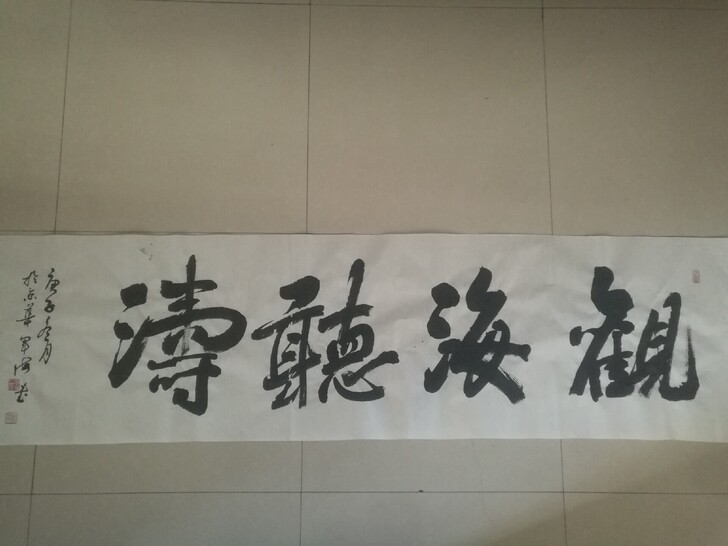 觀海聽濤
庚子冬月
於京華